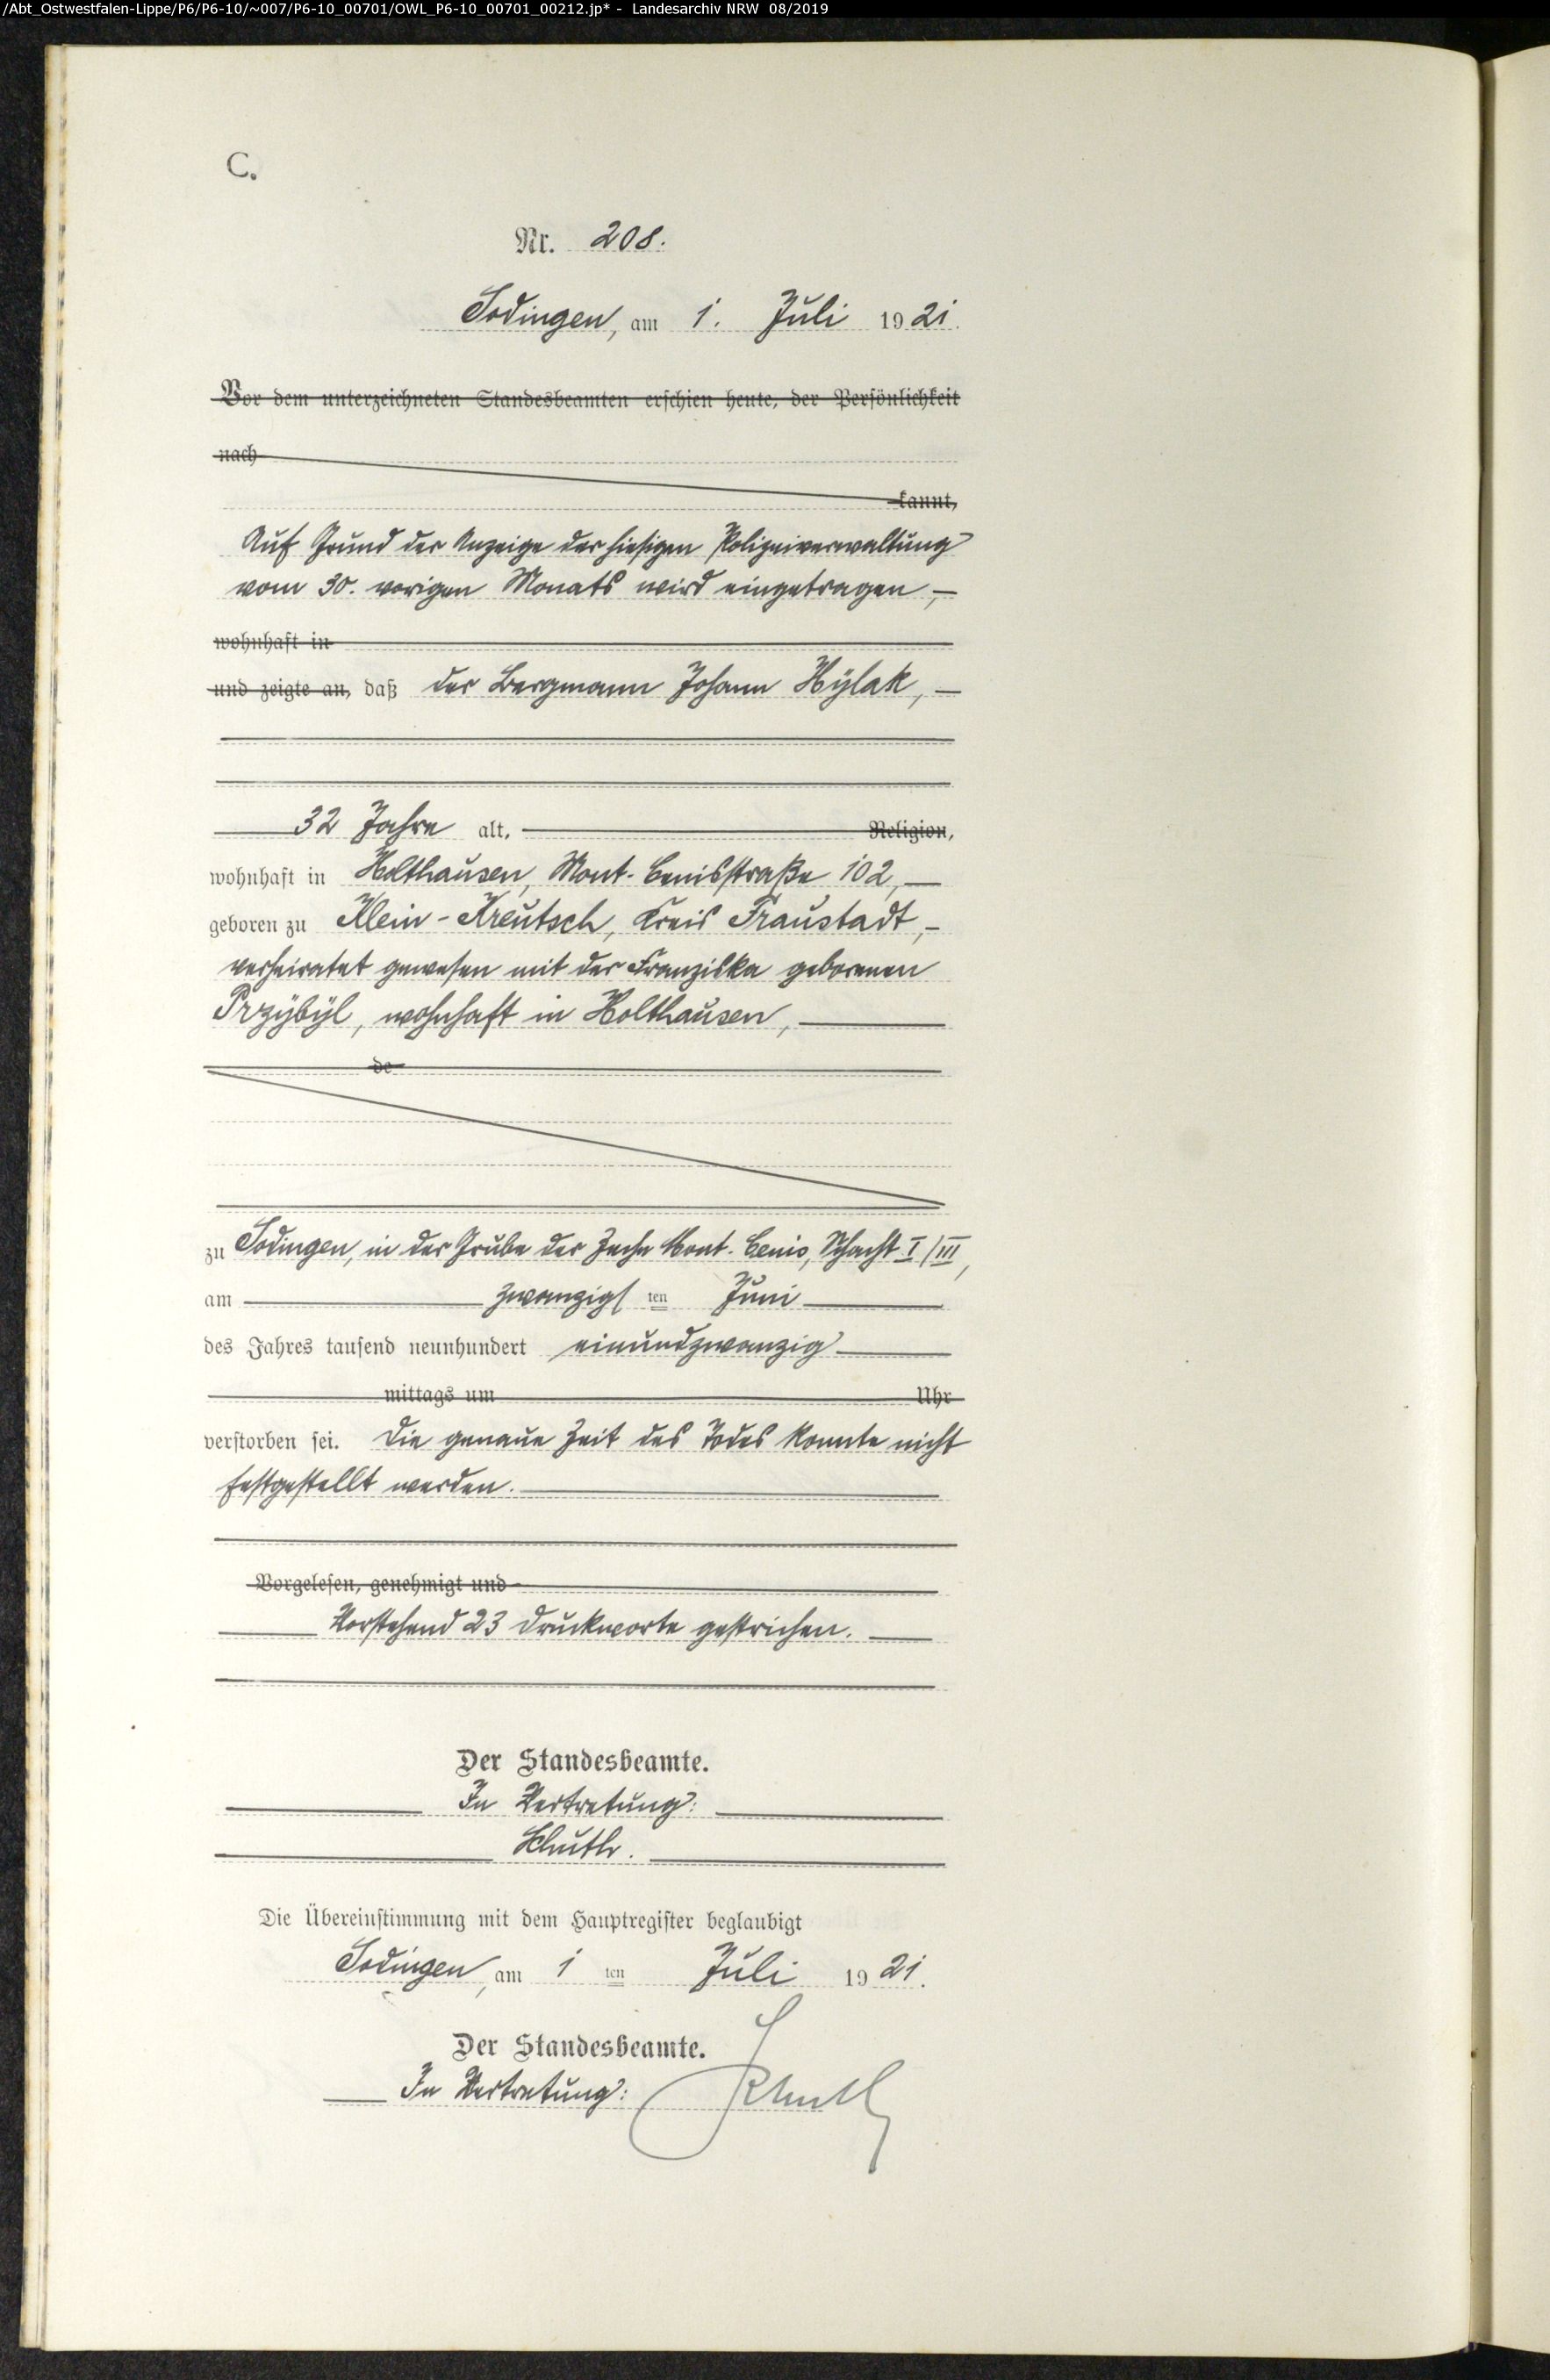 /Abt_Ostwestfalen-Lippe/P6/P6-10/~007/P6-10_00701/OWL_P6-10_00701_00212.jp* - Landesarchiv NRW 08/2019
C.
Nr. 208.
Sodingen, am 1. Juli 1921.
Vor dem unterzeichneten Standesbeamten erschien heute, der Persönlichkeit
nach
kannt,
Auf Grund der Anzeige der hiesigen Polizeiverwaltung
vom 30. vorigen Monats wird eingetragen, —
wohnhaft in
und zeigte an, daß der Bergmann Johann Hÿlak, —
32 Jahre alt, Religion,
wohnhaft in Holthausen, Mont-Cenisstraße 102, —
geboren zu Klein-Kreutsch, Kreis Fraustadt, -
verheiratet gewesen mit der Franziska geborenen
Przÿbÿl, wohnhaft in Holthausen,
de
zu Sodingen, in der Grube der Zeche Mont-Cenis, Schacht I/III,
am zwanzigsten Juni
des Jahres tausend neunhundert einundzwanzig
mittags um Uhr
verstorben sei. Die genaue Zeit des Todes konnte nicht
festgestellt werden.
Vorgelesen, genehmigt und
Vorstehend 23 Druckworte gestrichen.
Der Standesbeamte.
In Vertretung:
Die Übereinstimmung mit dem Hauptregister beglaubigt
Sodingen, am 1ten Juli 1921.
Der Standesbeamte.
In Vertretung: